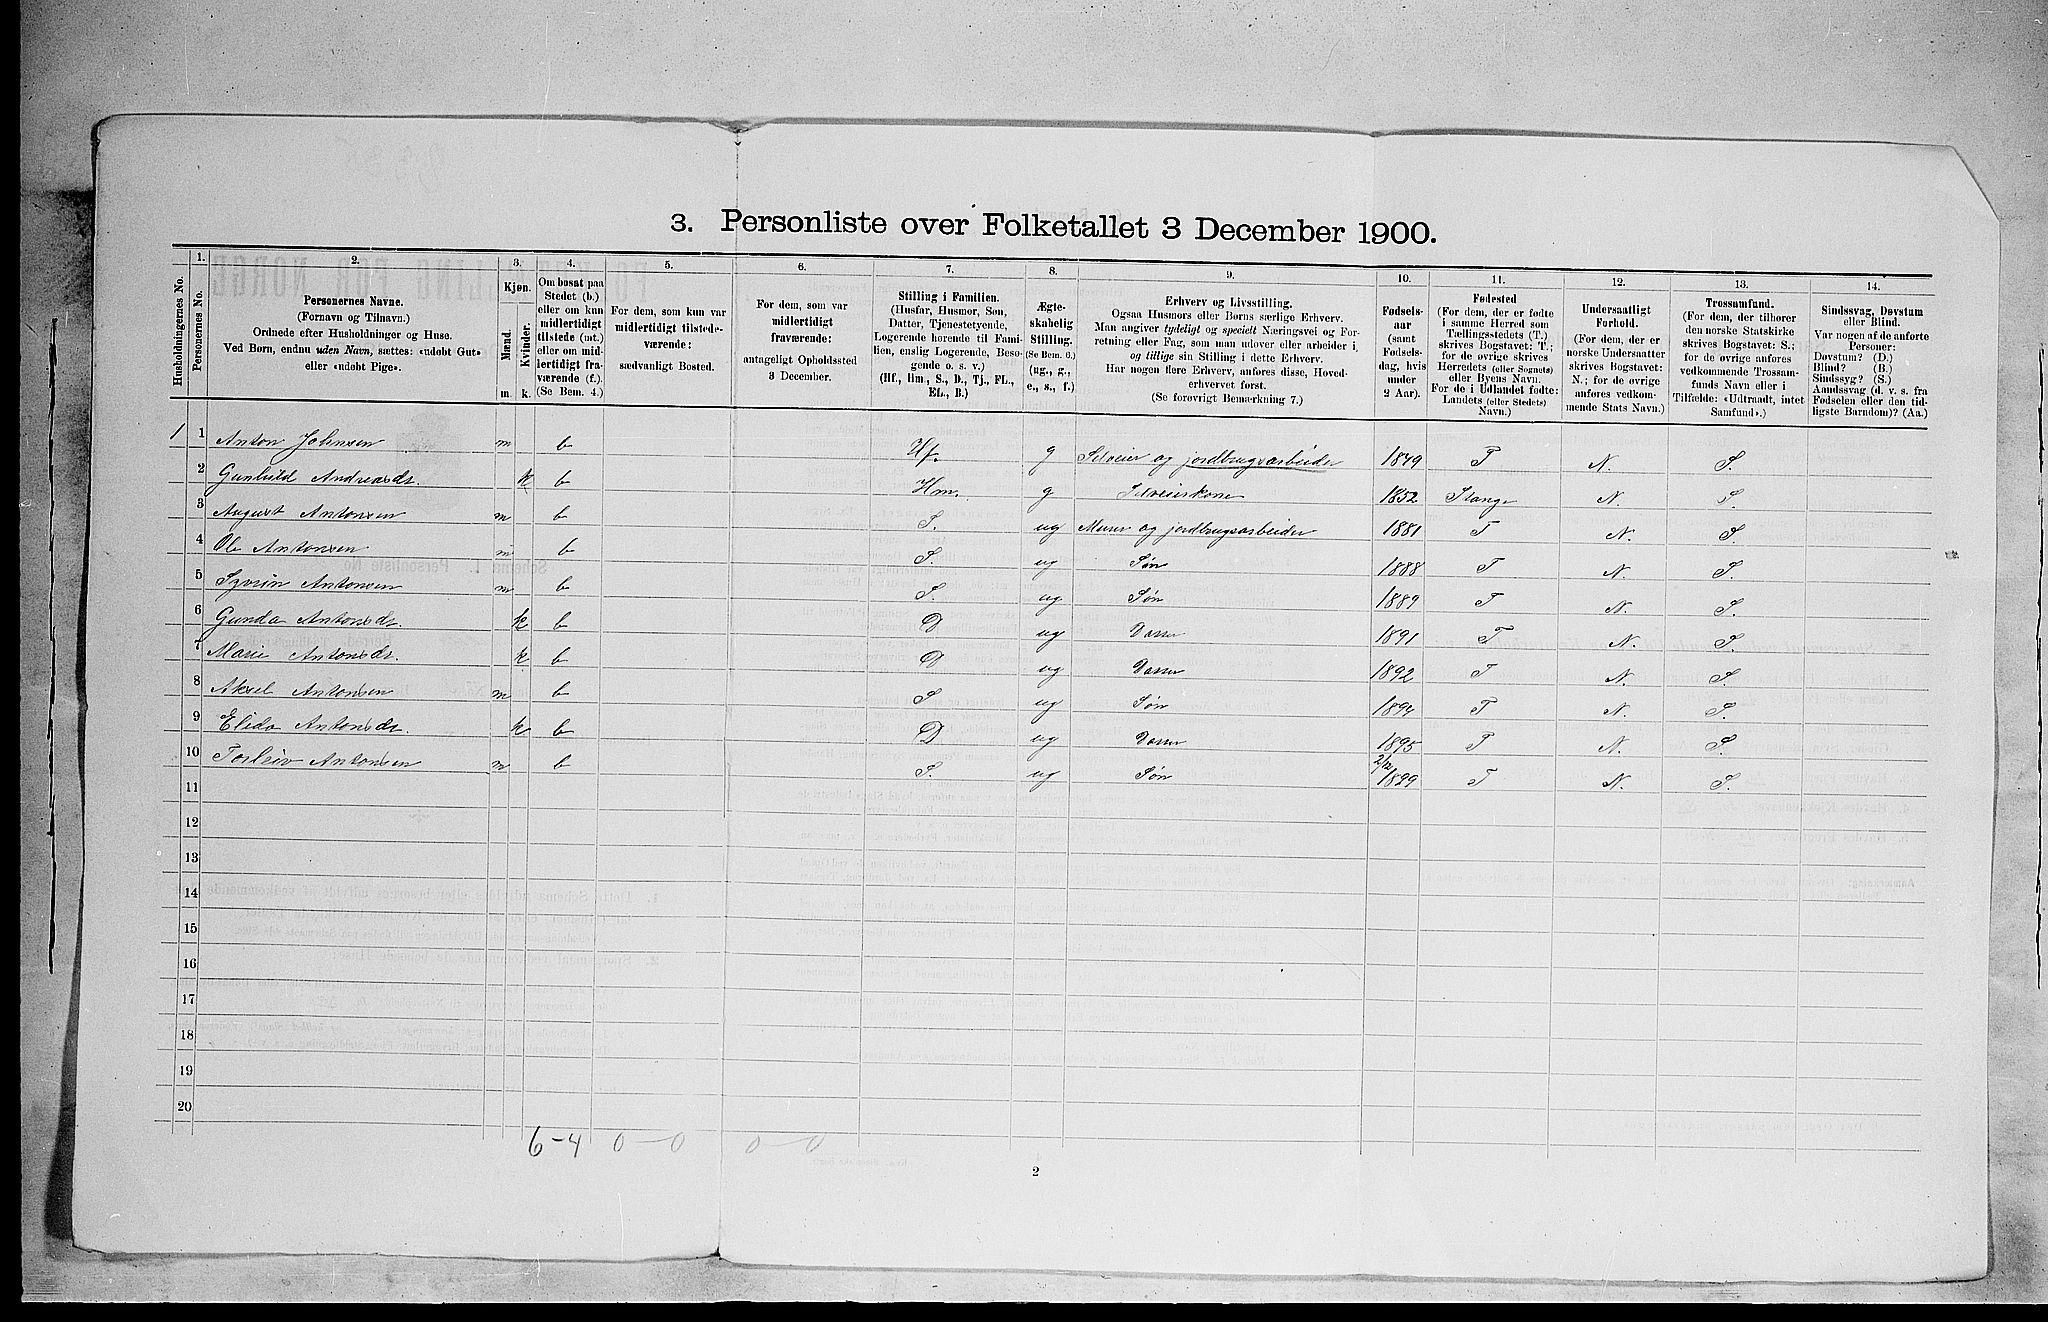 3. Personliste over Folketallet 3 December 1900.
Husholdningernes No.
1. Personernes No.
2. Personernes Navne.
(Fornavn og Tilnavn.)
Ordnede efter Husholdninger og Huse.
Ved Børn, endnu uden Navn, sættes: «udøbt Gut»
eller «udøbt Pige».
3. Kjøn.
Mænd. Kvinder.
m. k.
4. Om bosat paa
Stedet (b.)
eller om kun
midlertidigt
tilstede (mt.)
eller om mid-
lertidigt fra-
værende (f.)
(Se Bem. 4.)
5. For dem, som kun var
midlertidigt tilstede-
værende:
sædvanligt Bosted.
6. For dem, som var
midlertidigt
fraværende:
antageligt Opholdssted
3 December.
7. Stilling i Familien.
(Husfar, Husmor, Søn,
Datter, Tjenestetyende,
Logerende hørende til Fami-
lien, enslig Logerende, Beso-
gende o. s. v.)
(Hf., Hm., S., D., Tj., FL.,
EL., B.)
8. Ægte-
skabelig
Stilling.
(Se Bem. 6.)
(ug., g.,
e., s., f.)
9. Erhverv og Livsstilling.
Ogsaa Husmors eller Børns særlige Erhverv.
Man angiver tydeligt og specielt Næringsvei og For-
retning eller Fag, som man udover eller arbeider i,
og tillige sin Stilling i dette Erhverv.
Har nogen flere Erhverv, anføres disse, Hoved-
erhvervet først.
(Se forøvrigt Bemærkning 7.)
10. Fødsels-
aar
(samt
Fødsels-
dag, hvis
under
2 Aar).
11. Fødested
(For dem, der er fødte
i samme Herred som
Tællingsstedets (T.)
skrives Bogstavet: T.;
for de øvrige skrives
Herredets (eller Sognets)
eller Byens Navn.
For de i Udlandet fødte:
Landets (eller Stedets)
Navn.)
12. Undersaatligt
Forhold.
(For dem, der er
norske Undersaatter
skrives Bogstavet:
N.; for de øvrige
anføres vedkom-
mende Stats Navn.)
13. Trossamfund.
(For dem, der tilhører
den norske Statskirke
skrives Bogstavet: S.;
for de øvrige anføres
vedkommende Trossam-
funds Navn eller i
Tilfælde: «Udtraadt, intet
Samfund».)
14. Sindssvag, Døvstum
eller Blind.
Var nogen af de anførte
Personer:
Døvstum? (D.)
Blind? (B.)
Sindssyg? (S.)
Aandssvag (d. v. s. fra
Fødselen eller den tid-
ligste Barndom)? (Aa.)
1 1 Anton Johnsen m b Hf. g Selveier og jordbrugsarbeider 1849 T N. S.
2 Gunhild Andreasdr. k b Hm. g Selveierkone 1852 Stange N. S.
3 August Antonsen m b S. ug Murer og jordbrugsarbeider 1881 T N. S.
4 Ole Antonsen m b S. ug Søn 1888 T N. S.
5 Syverin Antonsen m b S. ug Søn 1889 T N. S.
6 Gunda Antonsdr. k b D ug Datter 1891 T N. S.
7 Marie Antonsdr. k b D ug Datter 1892 T N. S.
8 Aksel Antonsen m b S ug Søn 1894 T N. S.
9 Elida Antonsdr. k b D ug Datter 1895 T N. S.
10 Torleiv Antonsen m b S. ug Søn 2/12 1899 T N. S.
11
12
13
14
15
16
17
18
19
20
6-4 0-0 0-0
2